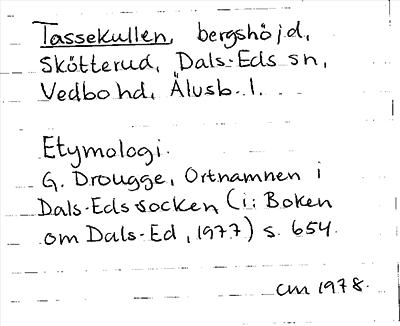 Tassekullen, bergshöjd,
Skötterud, Dals-Eds sn,
Vedbo hd, Älvsb. l.
Etymologi.
G. Drougge, Ortnamnen i
Dals-Eds socken (i: Boken
om Dals-Ed, 1977) s. 654.
cm 1978.